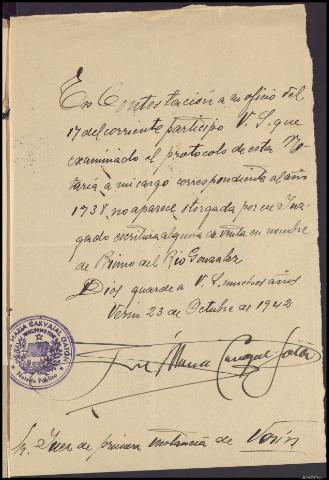 En Contestación a su oficio del
17 del corriente participo V. S. que
examinado el protocolo de esta No-
taría a mi cargo correspondiente al año
1938, no aparece otorgada por ese Juz-
gado escritura alguna de venta en nombre
de Primo del Río Gonzalez
Dios guarde a V. S. muchos años
Verin 23 de Octubre de 1942
José María Carvajal
JOSE MARIA CARVAJAL
Notario Público
Sr. Juez de primera instancia de Verín